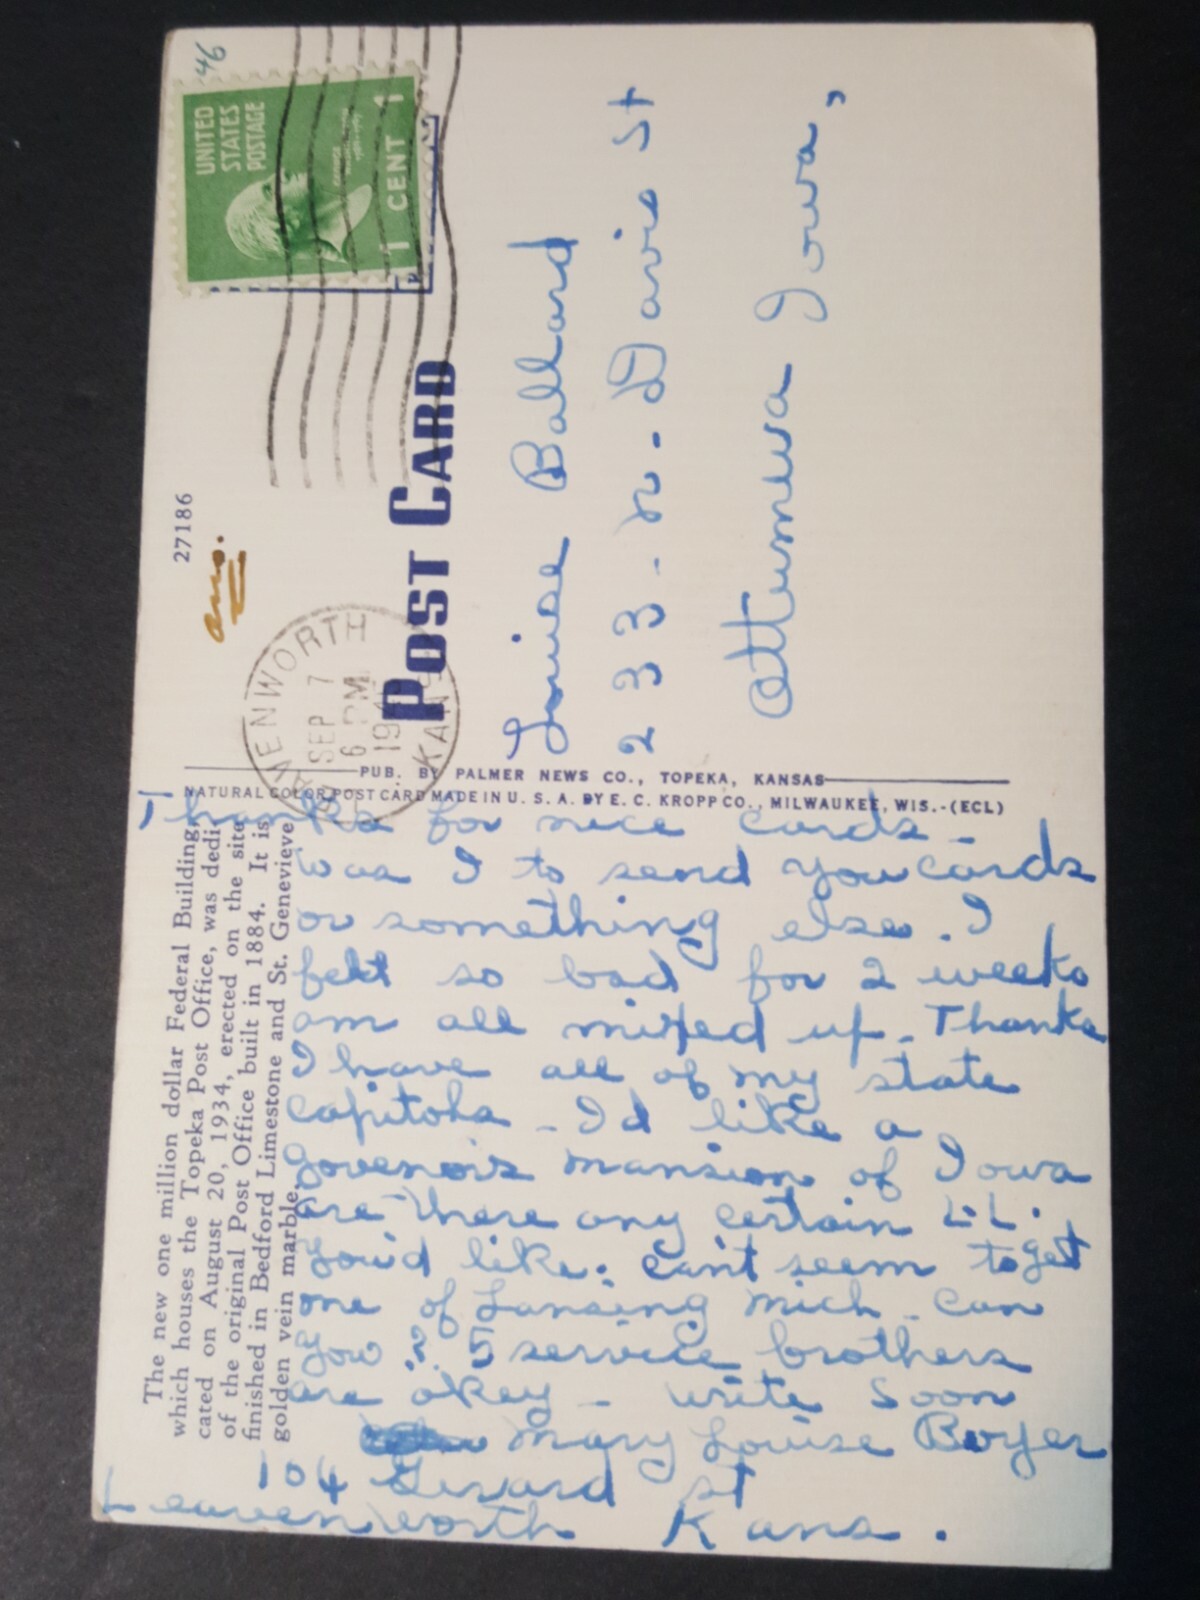 46
UNITED
STATES
POSTAGE
1 CENT 1
27186
ans.
LEAVENWORTH
SEP 7
6 PM
KANS
POST CARD
Louise Ballard
233 - N. Davis St
Ottumwa Iowa,
PUB. BY PALMER NEWS CO., TOPEKA, KANSAS
NATURAL COLOR POST CARD MADE IN U. S. A. BY E. C. KROPP CO., MILWAUKEE, WIS.-(ECL)
The new one million dollar Federal Building
which houses the Topeka Post Office, was dedi-
cated on August 20, 1934, erected on the site
of the original Post Office built in 1884. It is
finished in Bedford Limestone and St. Genevieve
golden vein marble.
Thanks for nice cards -
was I to send you cards
or something else. I
felt so bad for 2 weeks
am all mixed up - Thanks
I have all of my state
capitols - I'd like a
govenor's mansion of Iowa
are there any certain L.L.
you'd like. can't seem to get
one of Lansing Mich - can
you ? 5 service brothers
are okey - write soon
Mary Louise Boyer
104 Girard St
Leavenworth Kans.